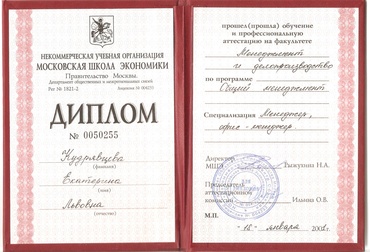 НЕКОММЕРЧЕСКАЯ УЧЕБНАЯ ОРГАНИЗАЦИЯ
МОСКОВСКАЯ ШКОЛА ЭКОНОМИКИ
Правительство Москвы.
Департамент общественных и межрегиональных связей.
Рег № 1821-2
ДИПЛОМ
№ 0050255
Кудрявцева
(фамилия)
Екатерина
(имя)
Львовна
(отчество)
прошел(прошла) обучение
и профессиональную
аттестацию на факультете
Менеджмент
и делопроизводство
по программе
Общий менеджмент
Специализация Менеджер,
офис-менеджер.
Директор
МШЭ Тыжухин Н.А.
Председатель
аттестационной
комиссии Ильина О.В.
М.П.
января